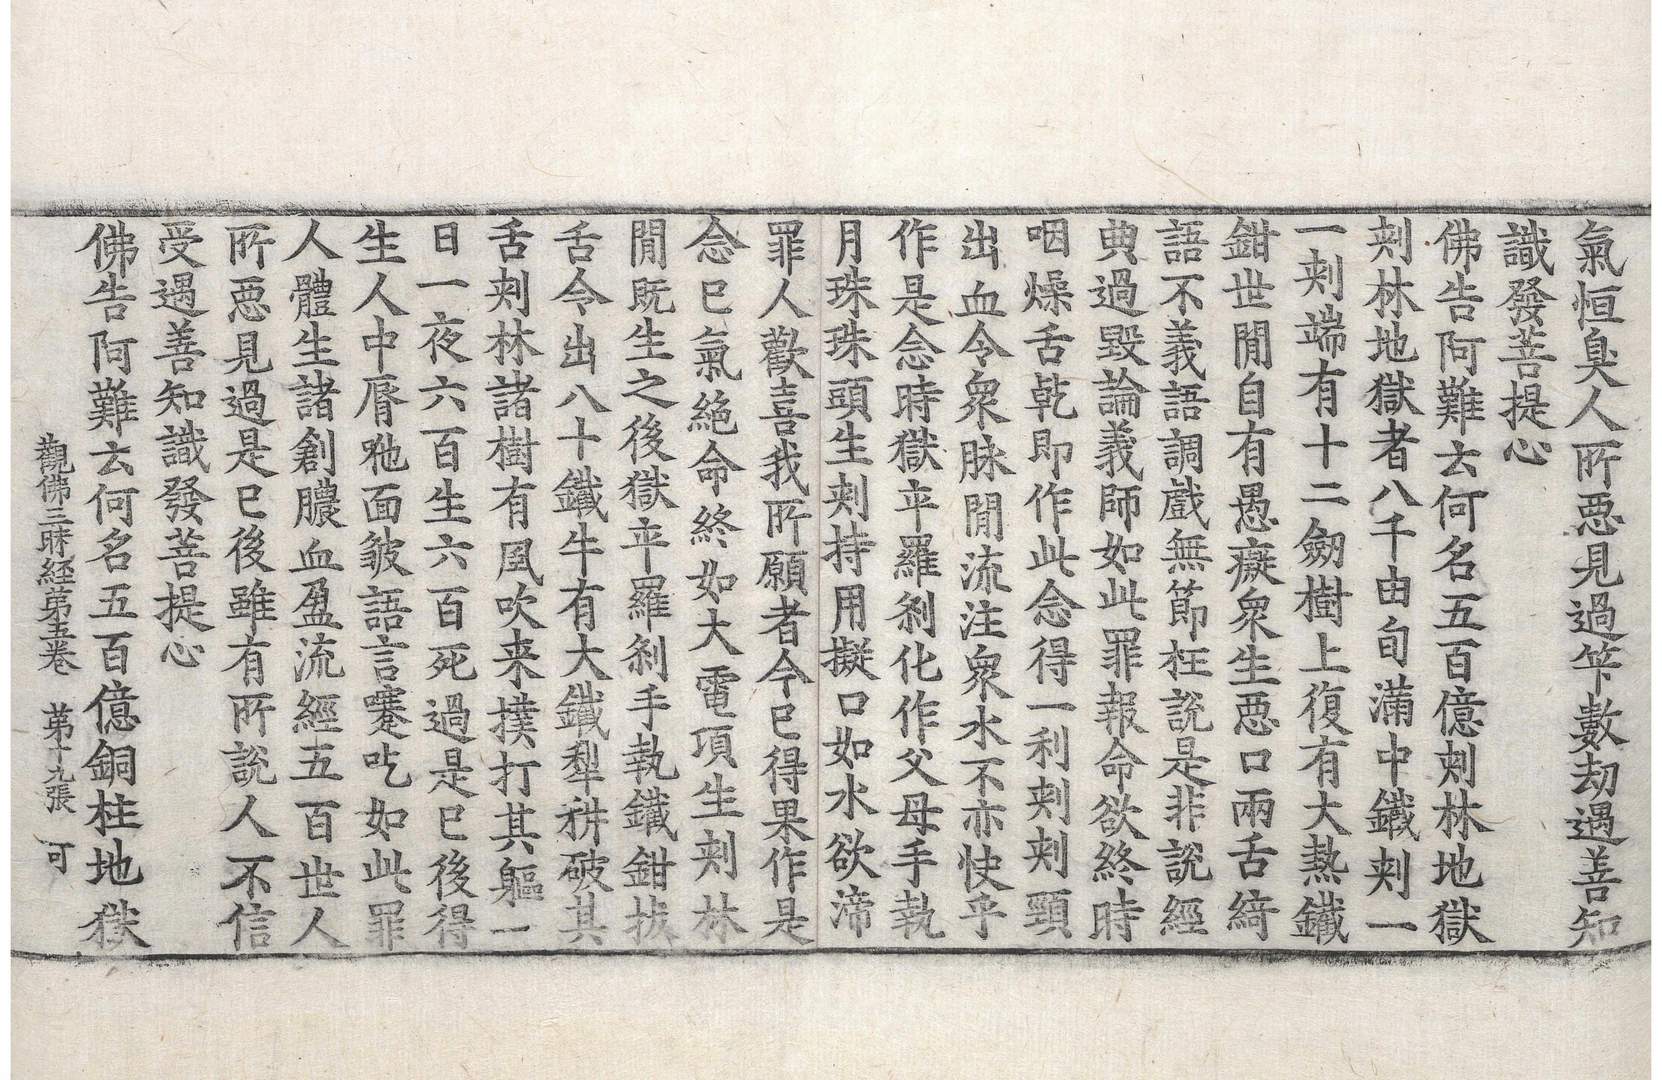 氣恒臭人所惡見過筭數劫遇善知
識發菩提心
佛告阿難云何名五百億刾林地獄
刾林地獄者八千由旬滿中鐵刾一
一刾端有十二劒樹上復有大熱鐵
鉗世閒自有愚癡衆生惡口兩舌綺
語不義語調戲無節枉說是非說經
典過毀論義師如此罪報命欲終時
咽燥舌乾即作此念得一利刾刾頸
出血令衆脉閒流注衆水不亦快乎
作是念時獄卒羅刹化作父母手執
月珠珠頭生刾持用擬口如水欲渧
罪人歡喜我所願者今已得果作是
念已氣絕命終如大電項生刾林
閒既生之後獄卒羅刹手執鐵鉗拔
舌令出八十鐵牛有大鐵犁耕破其
舌刾林諸樹有風吹来撲打其軀一
日一夜六百生六百死過是已後得
生人中脣哆面皺語言蹇吃如此罪
人體生諸創膿血盈流經五百世人
所惡見過是已後雖有所說人不信
受遇善知識發菩提心
佛告阿難云何名五百億銅柱地獄
觀佛三昧経第五卷 第十九張 可